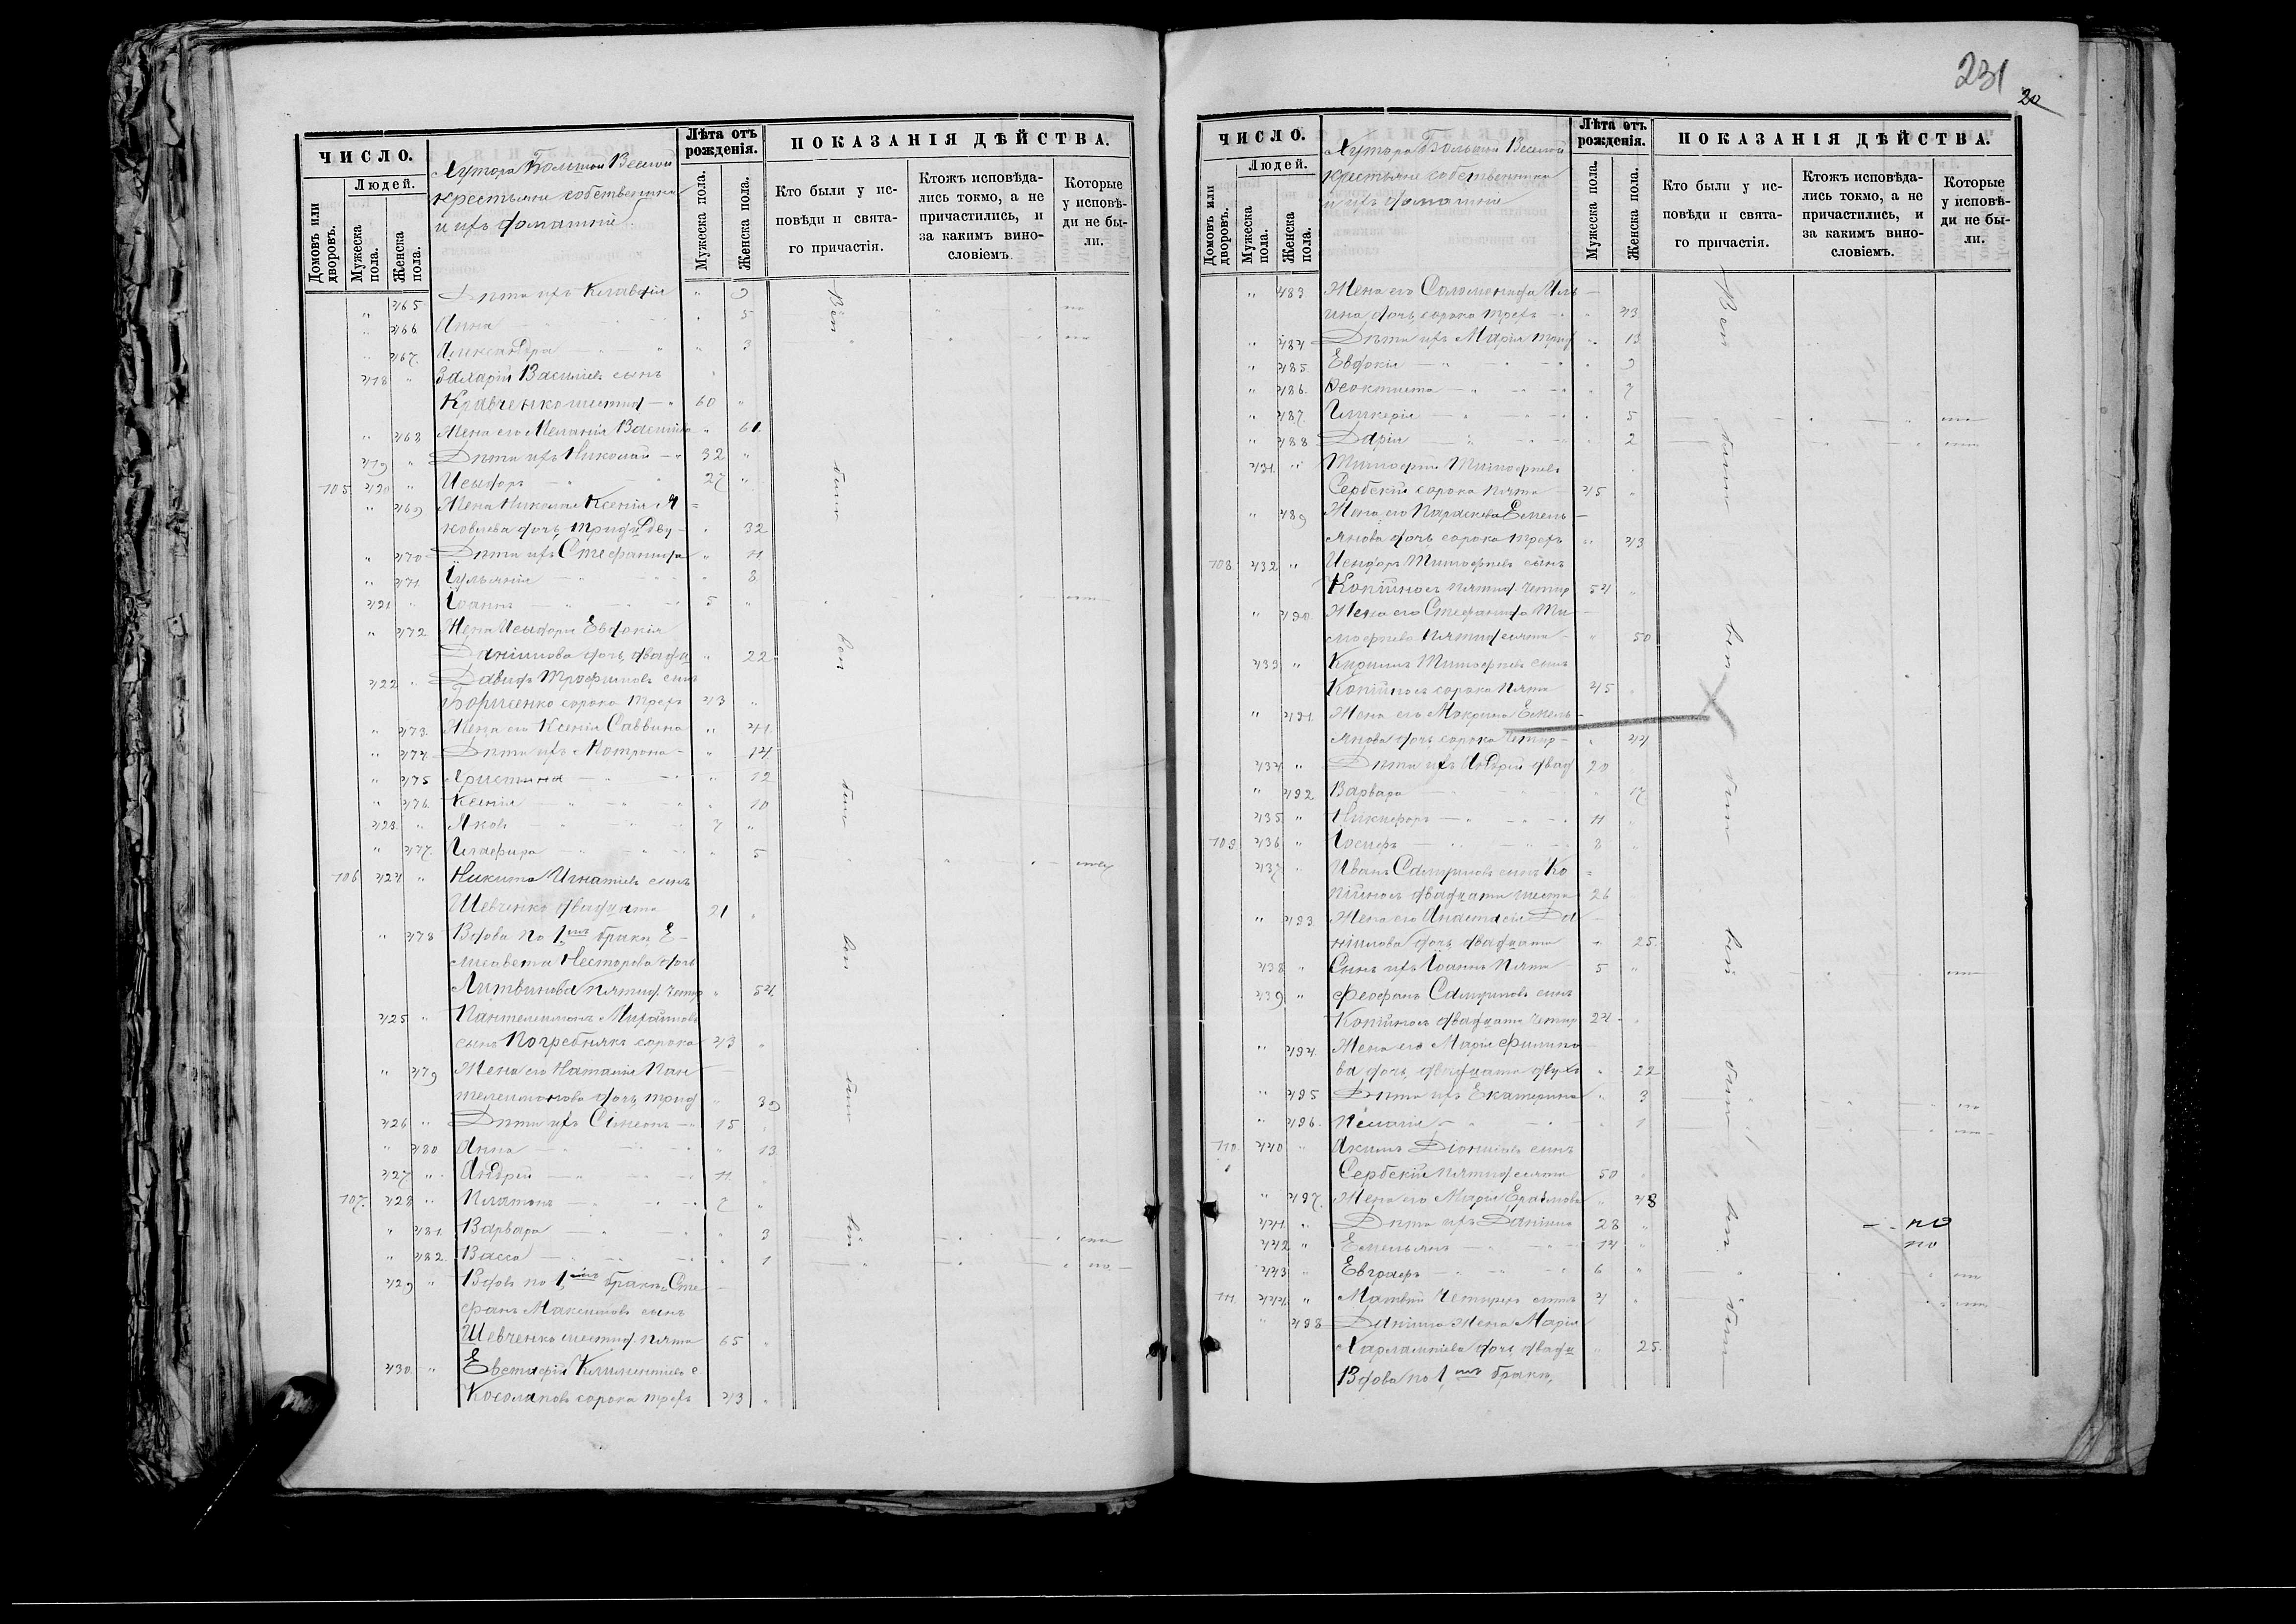 ЧИСЛО.
Людей.
Домовъ или дворовъ.
Мужеска пола.
Женска пола.
Хутора Большой Веселой
крестьяне собственники
и ихъ домашніе
Лѣта отъ рожденія.
Мужеска пола.
Женска пола.
ПОКАЗАНІЯ ДѢЙСТВА.
Кто были у ис-
повѣди и свята-
го причастія.
Ктожъ исповѣда-
лись токмо, а не
причастились, и
за какимъ вино-
словіемъ.
Которые
у исповѣ-
ди не бы-
ли.
" 465 Дѣти ихъ Клавдія " 9
" 466 Анна " 5
" 467. Александра " 3
418 " Захарій Василіевъ сынъ
Кравченко шестид 60 "
" 468 Жена его Меланія Василіева " 61.
419 " Дѣти ихъ Николай 32 "
105 420 " Исидоръ 27 "
" 469 Жена Николая Ксенія Я
ковлева дочь, тридц. дву 32
" 470 Дѣти ихъ Стефанида " 11
" 471 Іульянія " 8
421 " Іоаннъ 5 "
" 472 Жена Исидора Евдокія
Даніилова дочь, двадц " 22
422 " Давидъ Трофимовъ сынъ
Борисенко сорока трехъ 43 "
" 473. Жена его Ксенія Саввина " 41.
" 474. Дѣти ихъ Мотрона " 14
" 475 Христина " 12
" 476. Ксенія " 10
423. " Яковъ 7 "
" 477. Глафира " 5
106 424 " Никита Игнатіевъ сынъ
Шевченко двадцати 21 "
" 478 Вдова по 1мъ бракѣ Е-
лисавета Несторова дочь
Литвинова пятид. четыр " 54.
425 " Пантелеимонъ Михайловъ
сынъ Погребнякъ сорока 43 "
" 479 Жена его Наталія Пан
телеимонова дочь, трид " 39
426 " Дѣти ихъ Сімеонъ 15
" 480 Анна " 13.
427. " Андрей 11
107. 428 " Платонъ 7 "
" 481. Варвара " 3
" 482. Васса " 1
429 " Вдовъ по 1мъ бракѣ, Сте
фанъ Максимовъ сынъ
Шевченко шестид. пяти 65
430. " Евстафій Климентіевъ с.
Косолаповъ сорока трехъ 43 "
231
20
ЧИСЛО.
Людей.
Домовъ или дворовъ.
Мужеска пола.
Женска пола.
Хутора Большой Веселой
крестьяне собственники
и ихъ домашніе
Лѣта отъ рожденія.
Мужеска пола.
Женска пола.
ПОКАЗАНІЯ ДѢЙСТВА.
Кто были у ис-
повѣди и свята-
го причастія.
Ктожъ исповѣда-
лись токмо, а не
причастились, и
за какимъ вино-
словіемъ.
Которые
у исповѣ-
ди не бы-
ли.
" 483 Жена его Саломонида Иль
ина дочь, сорока трехъ " 43
" 484 Дѣти ихъ Марія трид " 13
" 485. Евдокія " 9
" 486. Ѳеоктиста " 7
" 487. Гликерія " 5
" 488 Дарія " 2
431. " Тимофей Тимофеевъ
Сербскій сорока пяти 45 "
" 489 Жена его Параскева Емель
янова дочь сорока трехъ " 43
108 432 " Исидоръ Тимофеевъ сынъ
Копійносъ пятид. четыр 54
" 490. Жена его Стефанида Ти
мофеева пятидесяти " 50
433 " Кириллъ Тимофеевъ сынъ
Копійносъ сорока пяти 45
" 491. Жена его Макрина Емель
янова дочь сорока четыр " 44
434. " Дѣти ихъ Андрей двад 20
" 492 Варвара " 17
435 " Никифоръ 11
109. 436 " Іосифъ 8
437 " Иванъ Самуиловъ сынъ Ко
пійносъ двадцати шести 26
" 493 Жена его Анастасія Да
ніилова дочь двадцати " 25.
438 " Сынъ ихъ Іоаннъ пяти 5 "
439 " Феофанъ Самуиловъ сынъ
Копійносъ двадцати четыр 24
" 494. Жена его Марія Филипо
ва дочь, двадцати двухъ " 22
" 495 Дѣти ихъ Екатерина " 3
" 496. Пелагія " 1
110. 440 " Акимъ Діонисіевъ сынъ
Сербскій пятидесяти 50
" 497. Жена его Марія Ерасмова " 48
441. " Дѣти ихъ Даніилъ 28 "
442 " Емельянъ 14 "
443 " Евграфъ 6 "
111. 444. " Матвѣй четырехъ лѣтъ 4
" 498 Даніила жена Марія
Харлампіева дочь, двадц 25.
Вдова по 1мъ бракѣ,